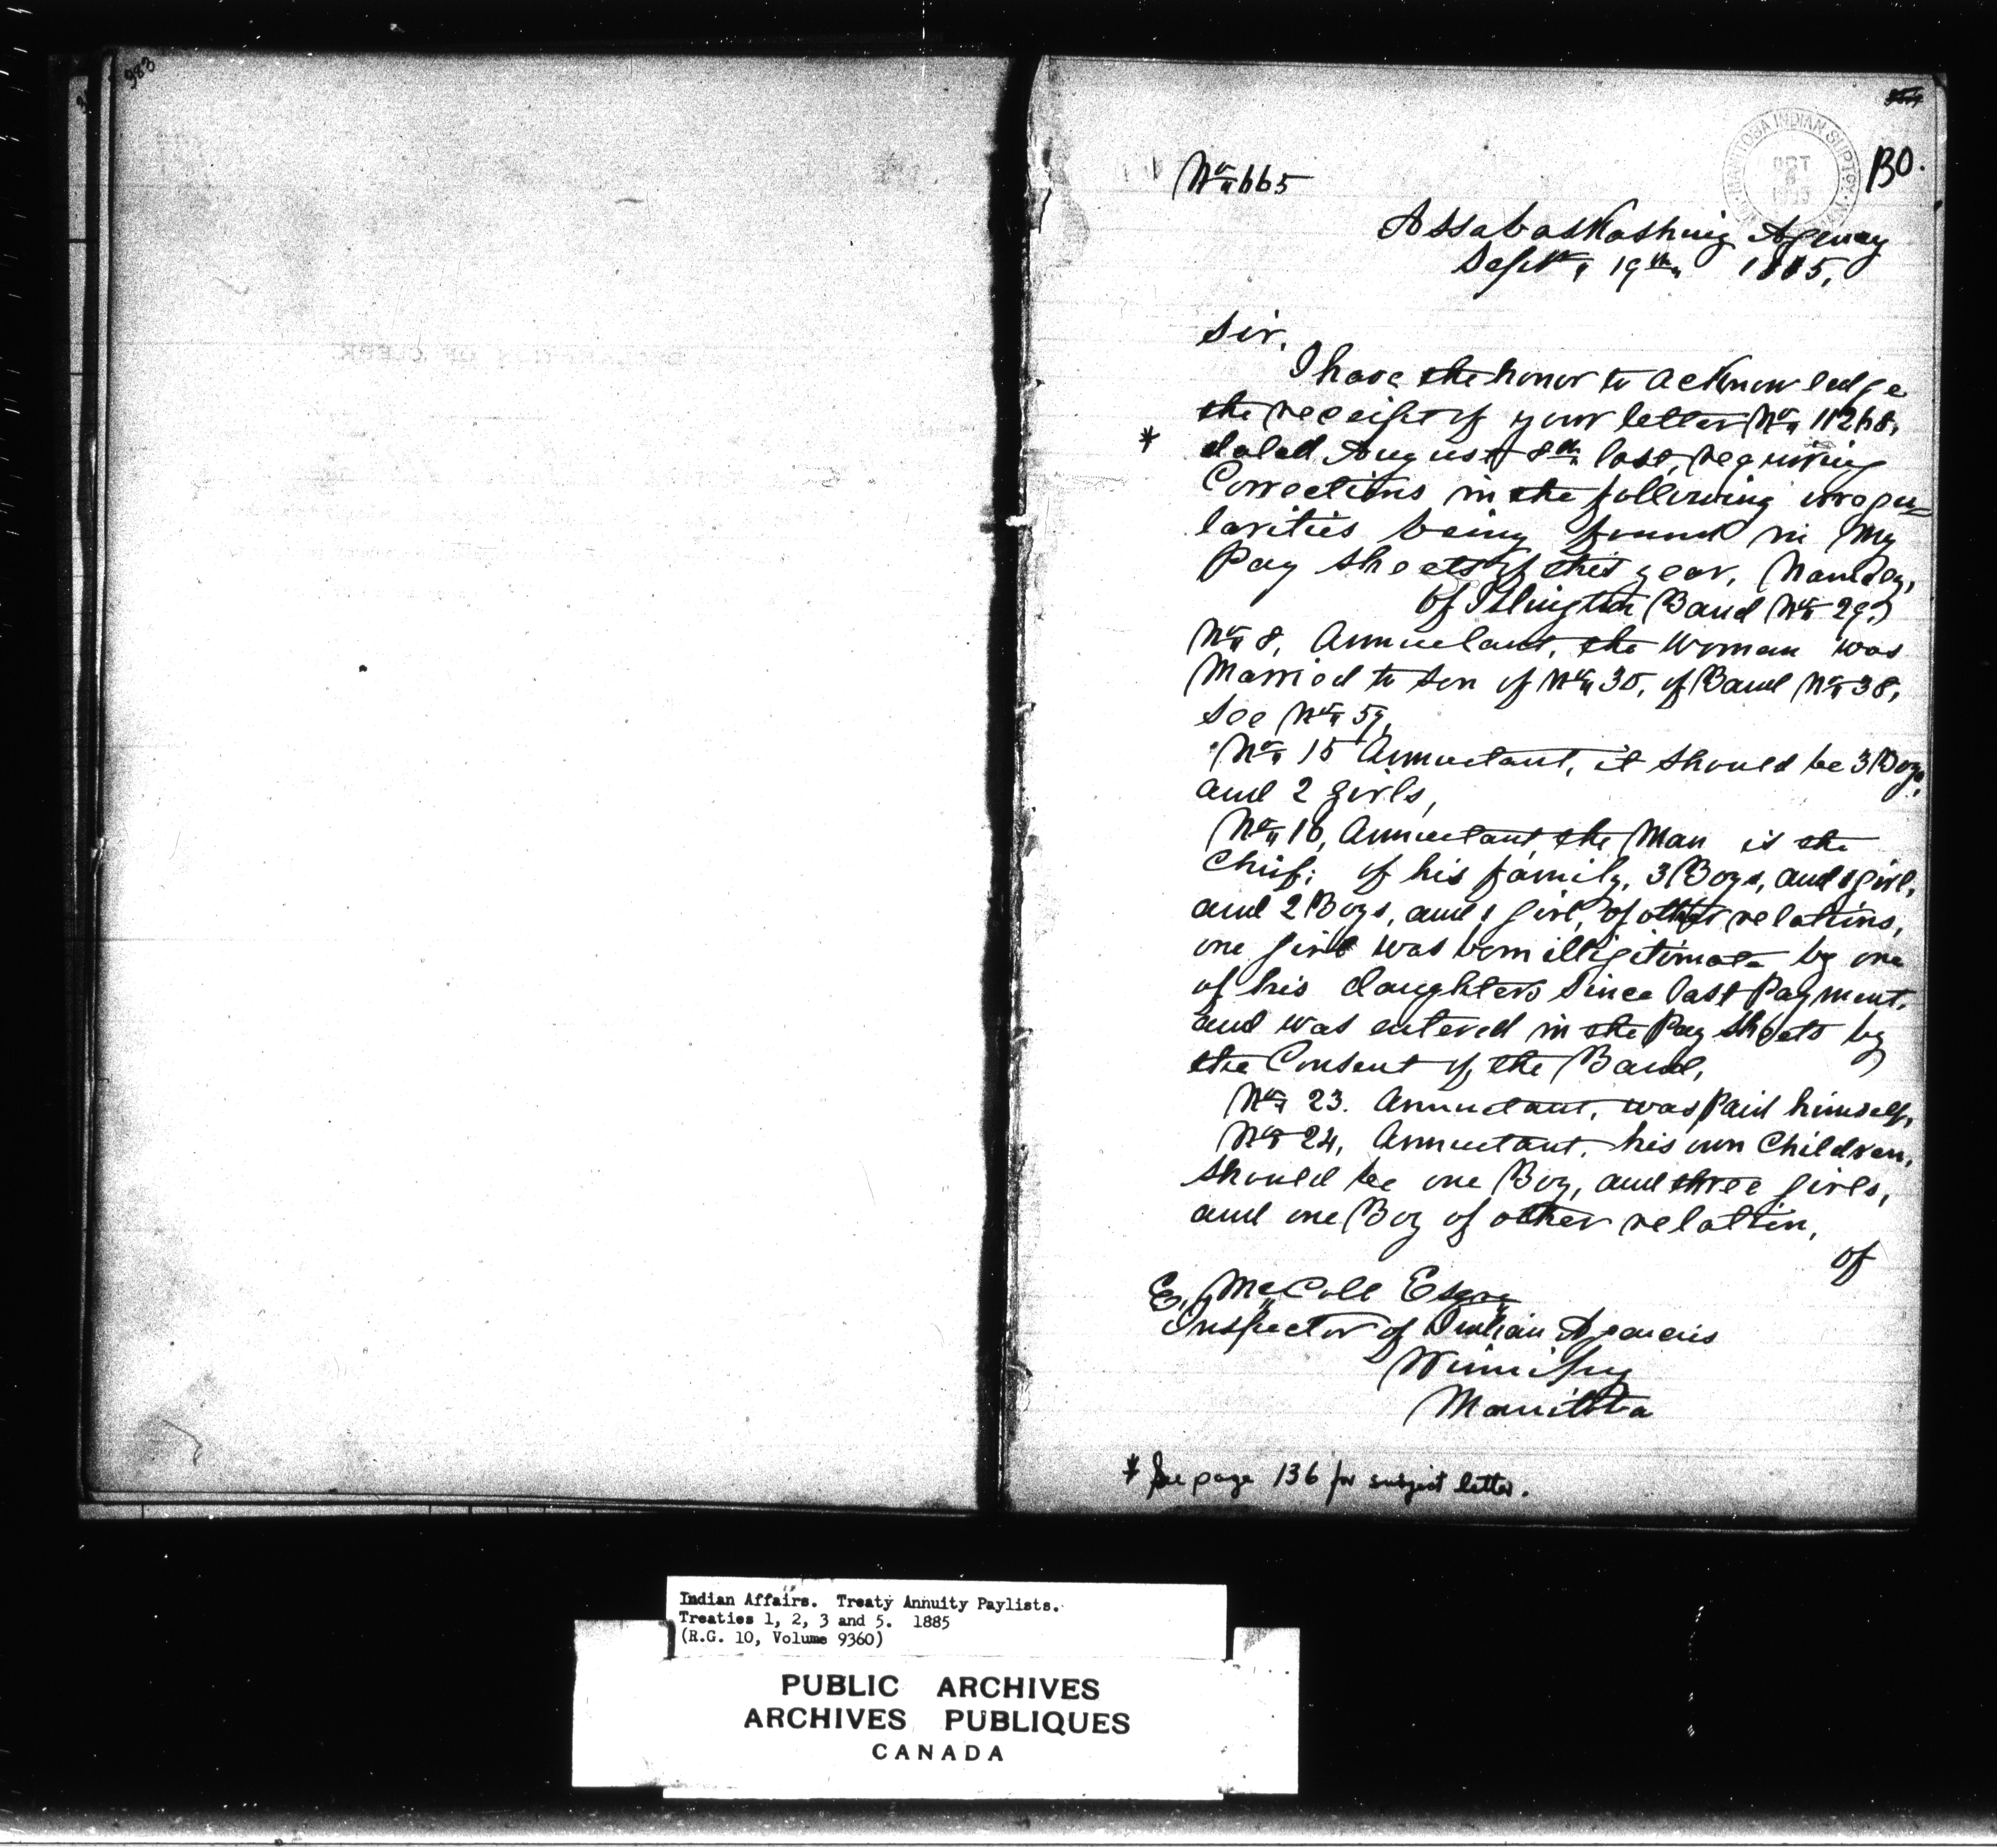 983
MANITOBA INDIAN SUPTCY.
OCT
6
1885
130.
No 665
Assabaskashing Agency
Sept 19th 1885.
Sir.
I have the honor to acknowledge
the receipt of your letter No 11268,
* dated August 8th last, requiring
Corrections in the following irregu=
larities being found in my
Pay sheets of this year, Namely,
Of Islington Band No 29.
No 8, Annuitant, the Woman was
Married to son of No 30, of Band No 38,
see No 59,
No 15 Annuitant, it should be 3 Boys,
and 2 girls,
No 16, Annuitant the Man is the
Chief: of his family, 3 Boys, and 1 girl,
and 2 Boys, and 1 girl, of other relations,
one girl was born illigitimate by one
of his daughters since last Payment,
and was entered in the Pay sheets by
the Consent of the Band,
No 23. Annuitant, was Paid himself,
No 24, Annuitant, his own Children,
should be one Boy, and three girls,
and one Boy of other relation,
of
E. McColl Esqre
Inspector of Indian Agencies
Winnipeg
Manitoba
* See page 136 for subject letter.
Indian Affairs. Treaty Annuity Paylists.
Treaties 1, 2, 3 and 5. 1885
(R.G. 10, Volume 9360)
PUBLIC ARCHIVES
ARCHIVES PUBLIQUES
CANADA